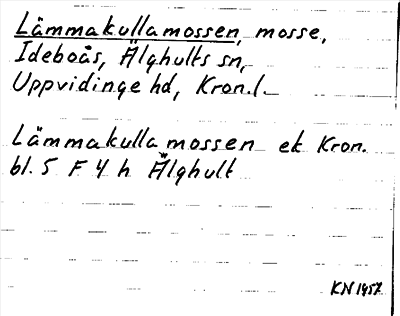 Lämmakullamossen, mosse,
Ideboås, Älghults sn,
Uppvidinge hd, Kron.l.
Lämmakulla mossen ek Kron.
bl. 5 F 4 h Älghult
KN 1957